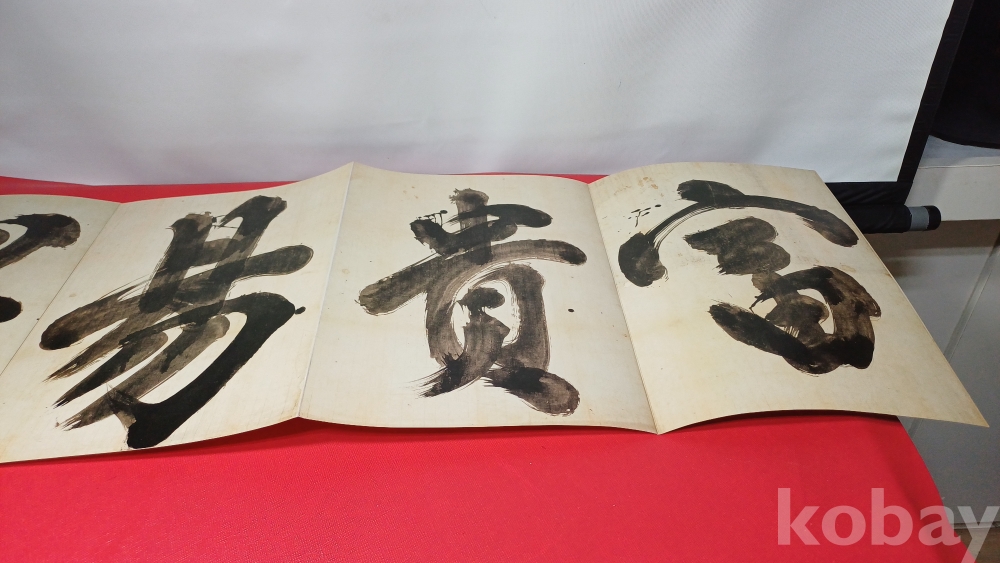 富貴易
kobay